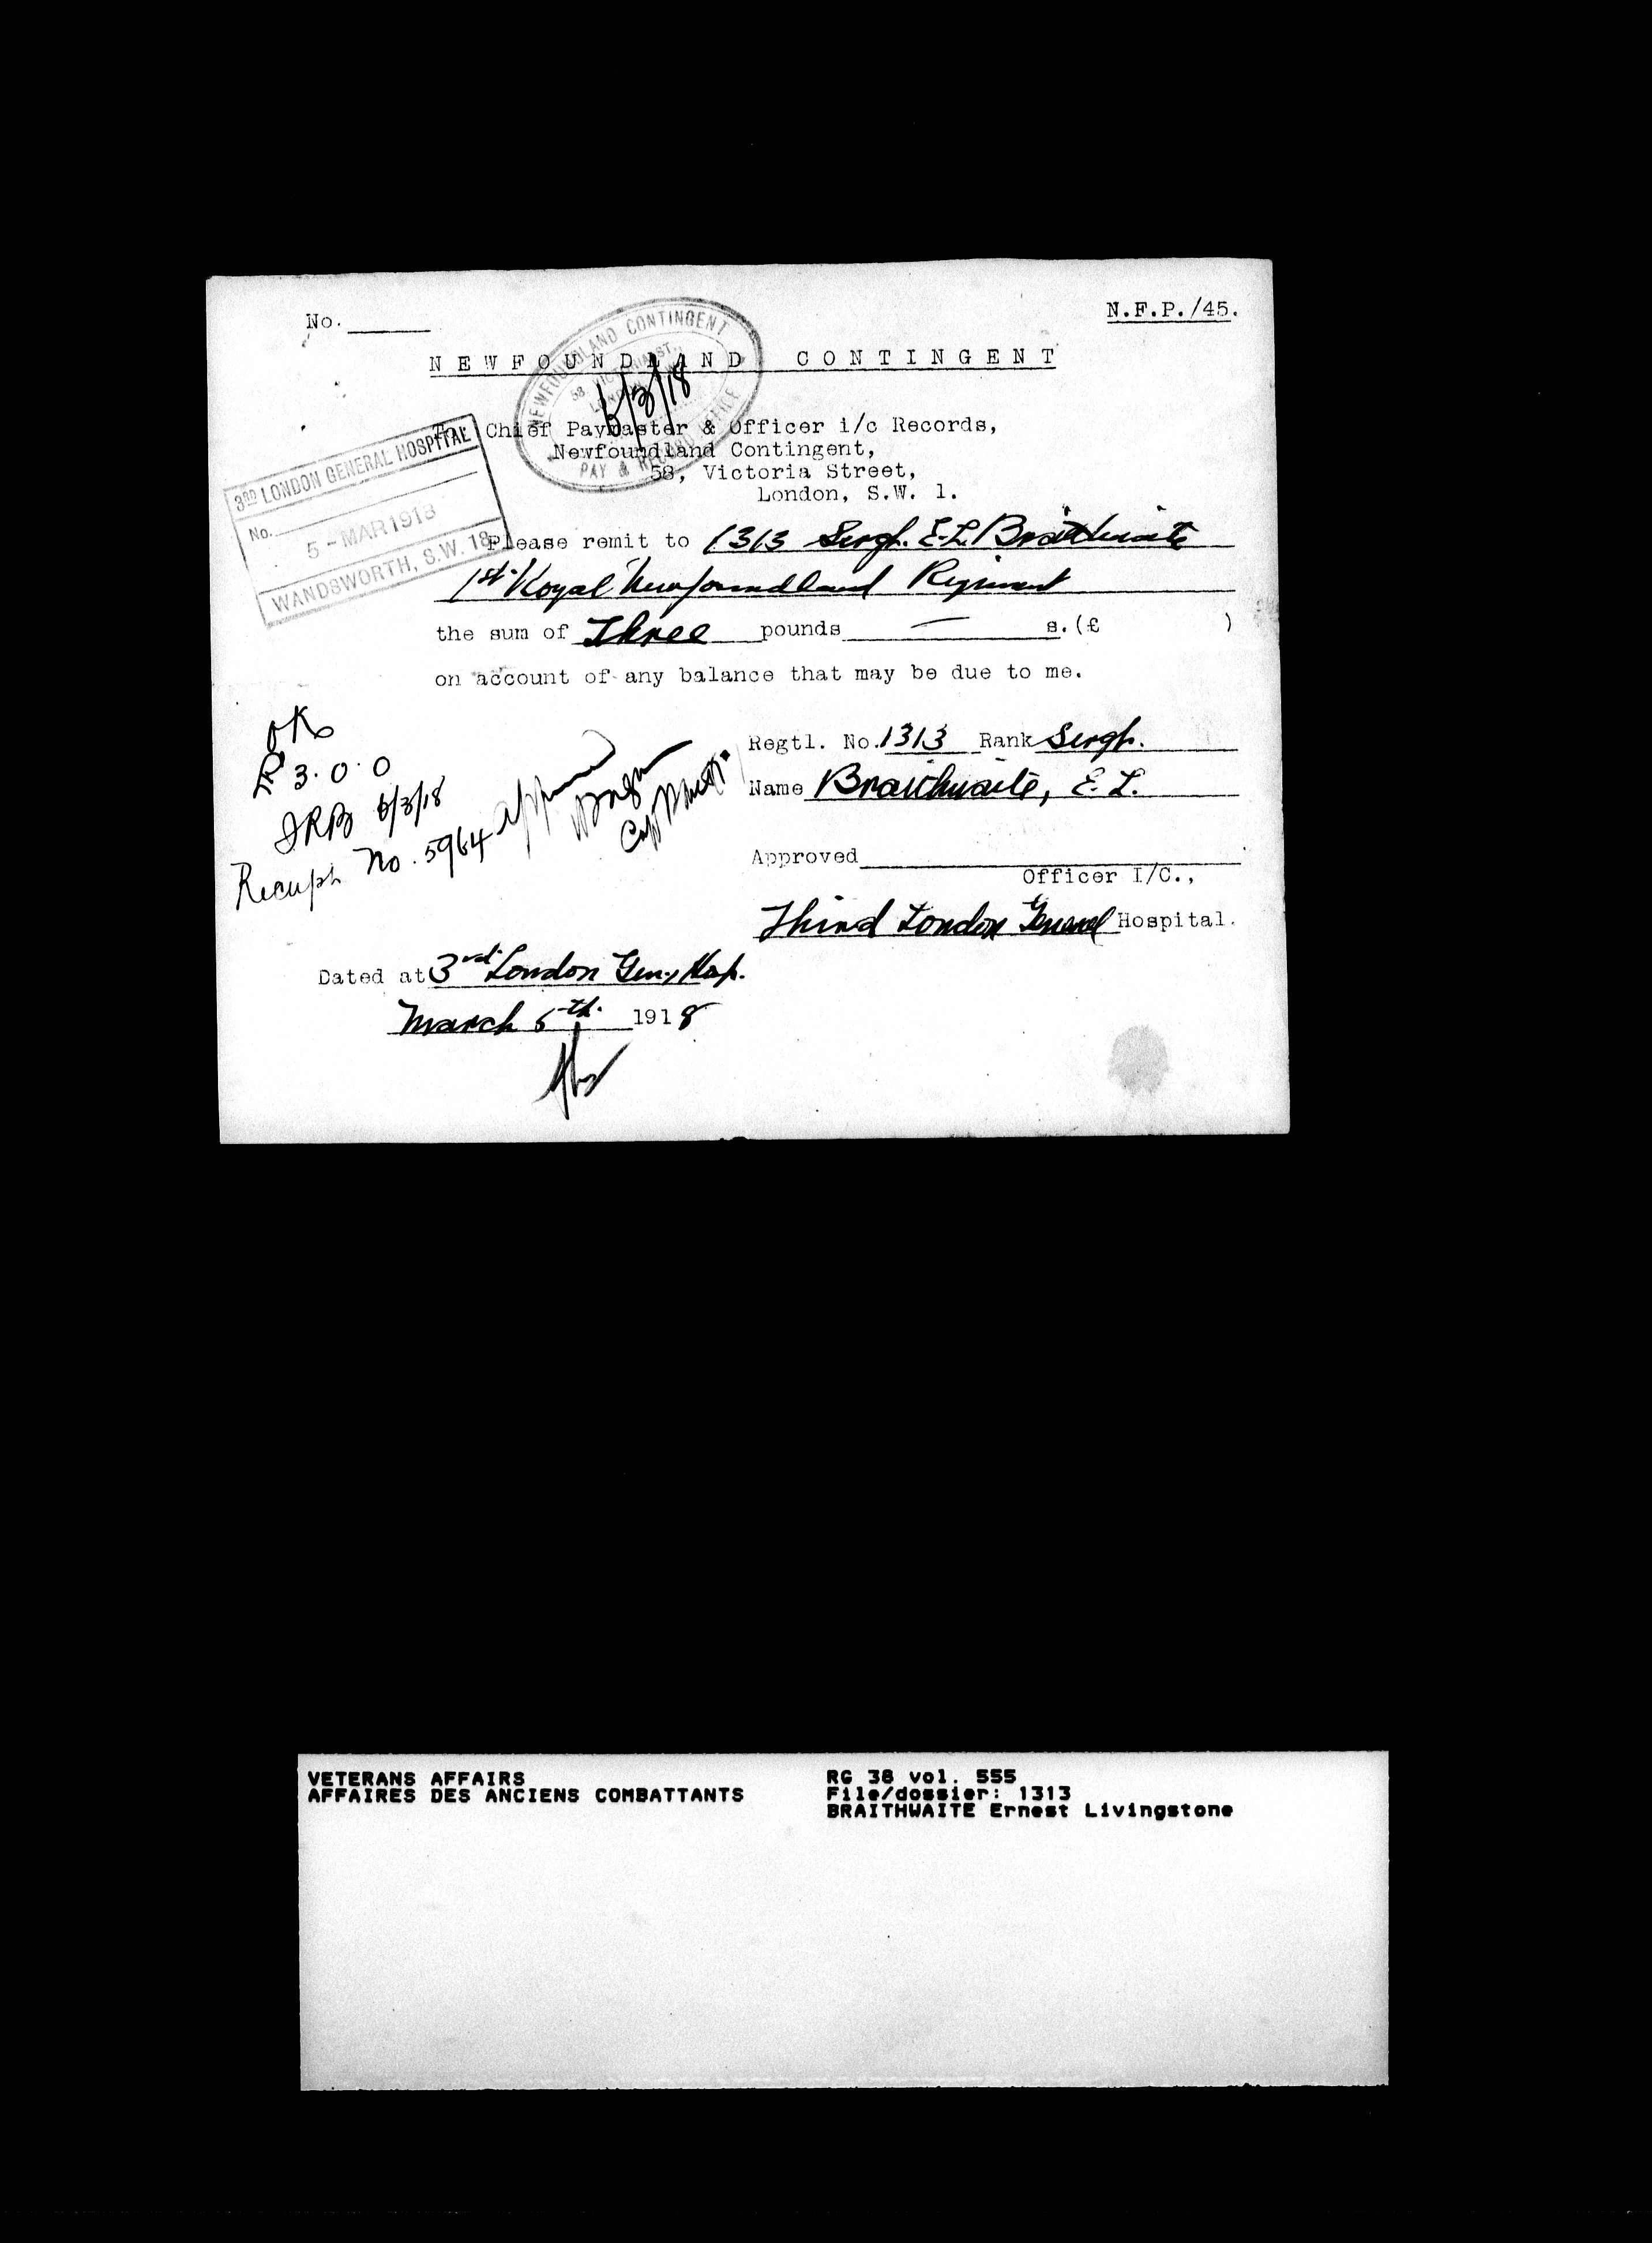 No.
N.F.P./45.
NEWFOUNDLAND CONTINGENT
NEWFOUNDLAND CONTINGENT
58 VICTORIA ST.,
LONDON
PAY & RECORD OFFICE
6/3/18
To Chief Paymaster & Officer i/c Records,
Newfoundland Contingent,
58, Victoria Street,
London, S.W. 1.
3RD LONDON GENERAL HOSPITAL
No.
5 - MAR 1918
WANDSWORTH, S.W. 18
Please remit to 1313 Sergt. E.L. Braithwaite
1st Royal Newfoundland Regiment
the sum of Three pounds — s. (£ )
on account of any balance that may be due to me.
OK
£3.0.0
JRB 6/3/18
Receipt No. 5964
Approved
Capt
Regtl. No. 1313 Rank Sergt.
Name Braithwaite, E. L.
Approved
Officer I/C.,
Third London General Hospital.
Dated at 3rd London Gen., Hosp.
March 5th. 1918
VETERANS AFFAIRS
AFFAIRES DES ANCIENS COMBATTANTS
RG 38 vol. 555
File/dossier: 1313
BRAITHWAITE Ernest Livingstone